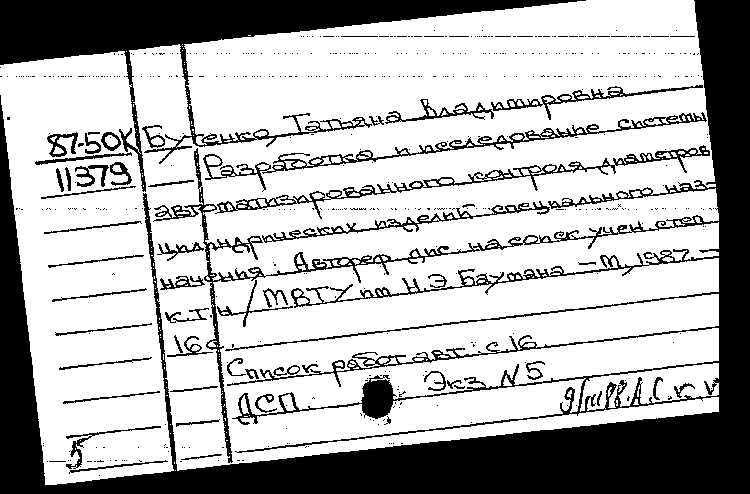 87-50К Бутенко, Татьяна Владимировна
11379 Разработка и исследование системы
автоматизированного контроля диаметров
цилиндрических изделий специального наз-
начения: Автореф дис. на соиск учен степ
к.т.н. / МВТУ им Н.Э. Баумана. – М, 1987. –
16 с.
Список работ авт.: с. 16
ДСП. Экз. N 5
5